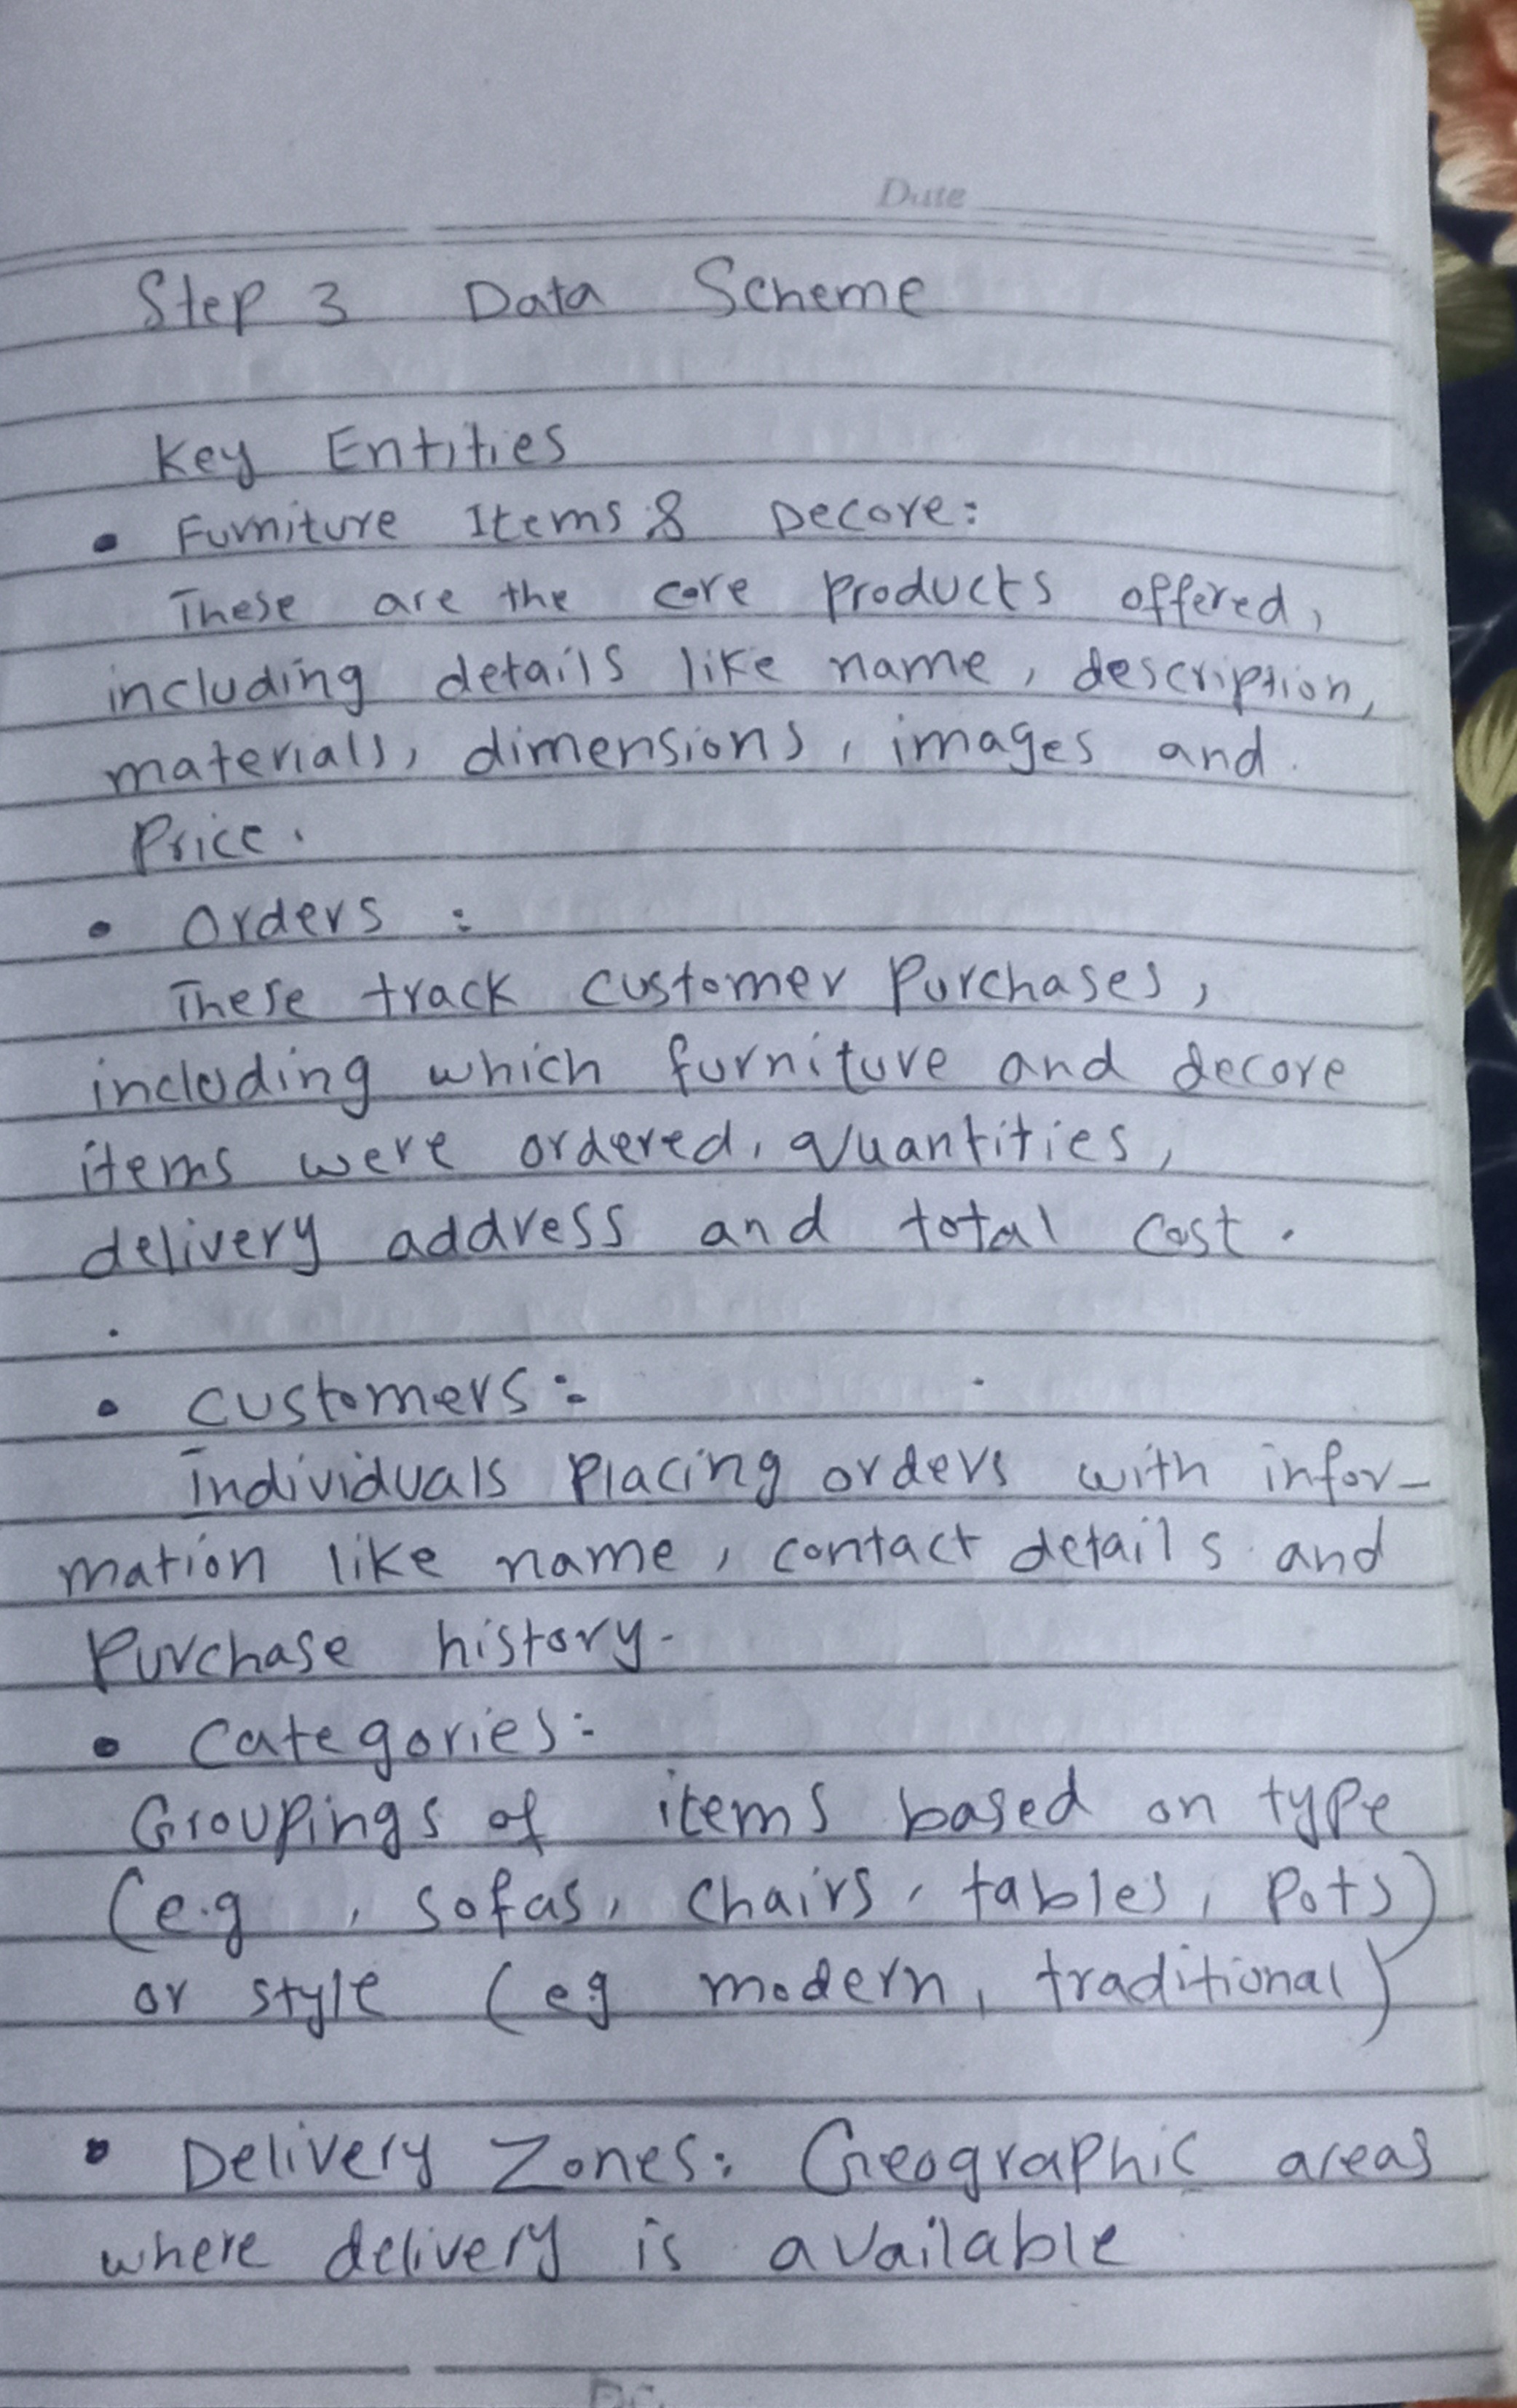 Date
Step 3 Data Scheme
Key Entities
• Furniture Items & Decore:
These are the core products offered,
including details like name, description,
materials, dimensions, images and
Price.
• Orders :
These track customer Purchases,
including which furniture and decore
items were ordered, quantities,
delivery address and total cost.
• Customers :-
Individuals Placing orders with infor-
mation like name, contact details and
Purchase history.
• Categories:-
Groupings of items based on type
(e.g , sofas, chairs, tables, Pots)
or style (eg modern, traditional)
• Delivery Zones: Geographic areas
where delivery is available